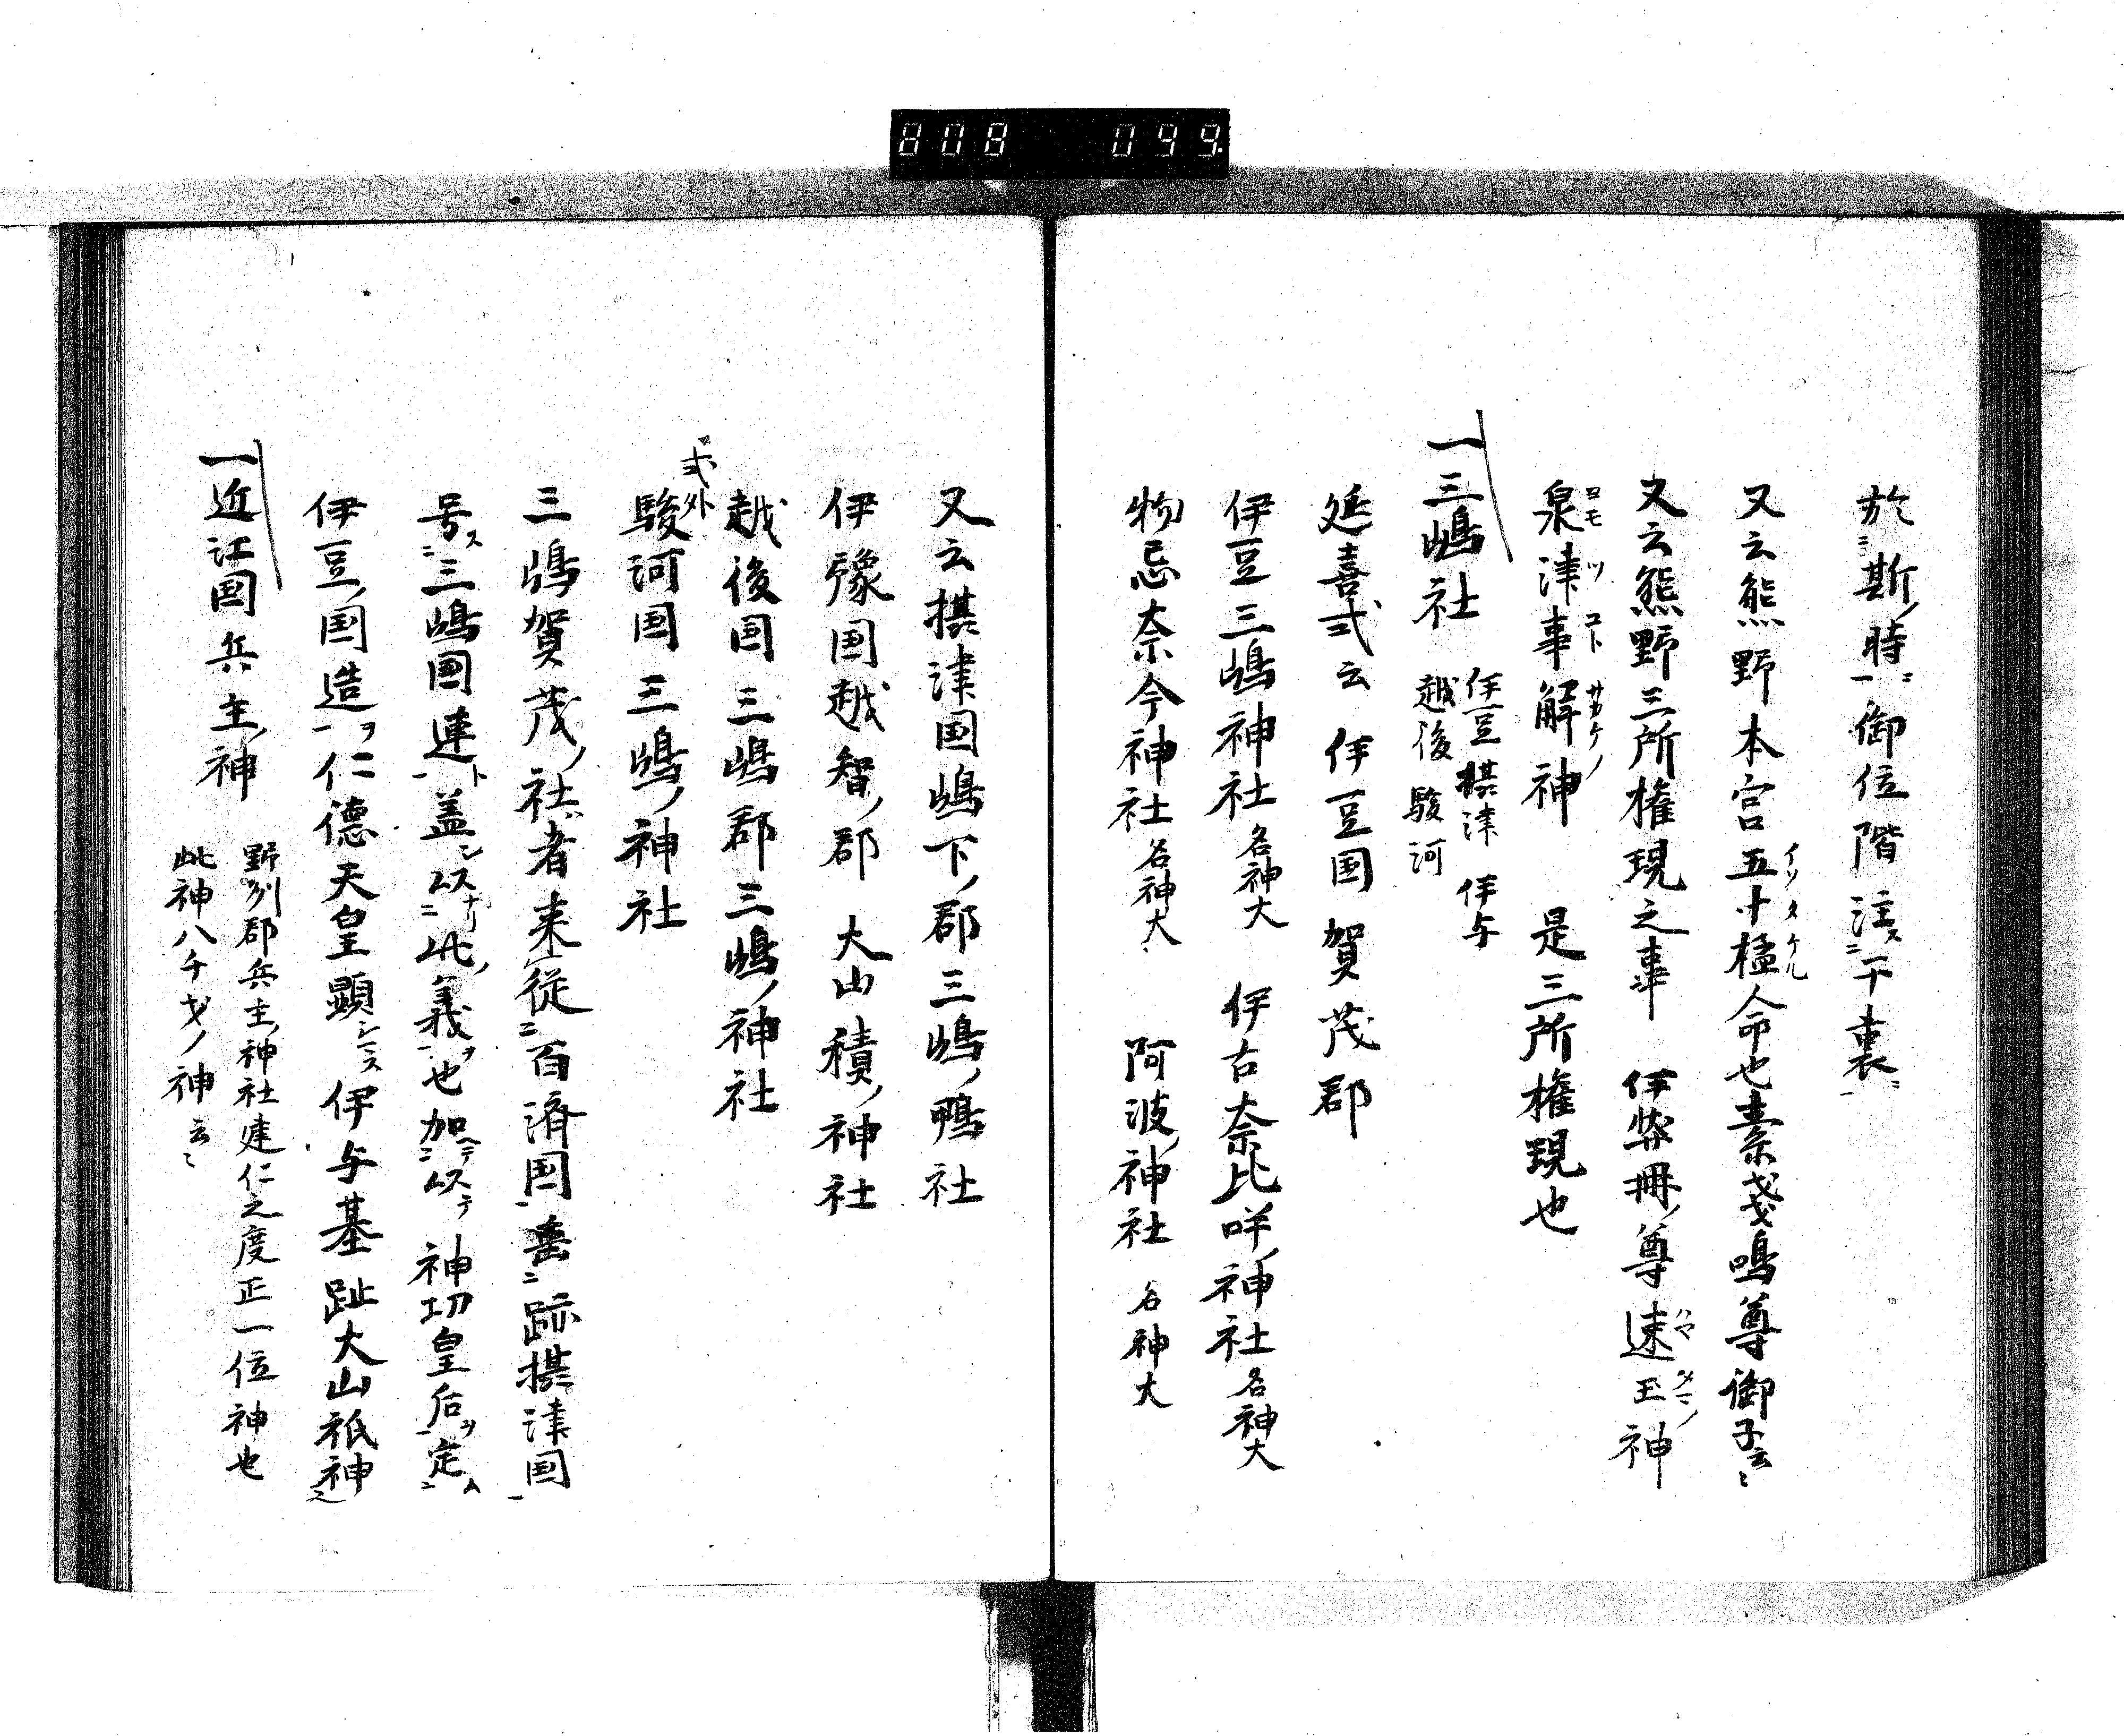 808 099.
於斯時御位階注于裏
又云熊野本宮五十猛命也素戔嗚尊御子云々
又云熊野三所権現之事 伊弉冊尊 速玉神
泉津事解神 是三所権現也
一三嶋社 伊豆 摂津 伊与
越後 駿河
延喜式云 伊豆国賀茂郡
伊豆三嶋神社 名神大 伊古奈比咩神社 名神大
物忌奈命神社 名神大 阿波神社 名神大
又云摂津国嶋下郡三嶋鴨社
伊豫国越智郡 大山積神社
越後国三嶋郡三嶋神社
式外
駿河国三嶋神社
三嶋賀茂社者来従百済国垂跡摂津国
号三嶋国連盖以此義也加以神功皇后定
伊豆国造仁德天皇顕伊与基趾大山祇神
一近江国兵主神 野列郡兵主神社建仁之度正一位神也
此神八千戈神云々